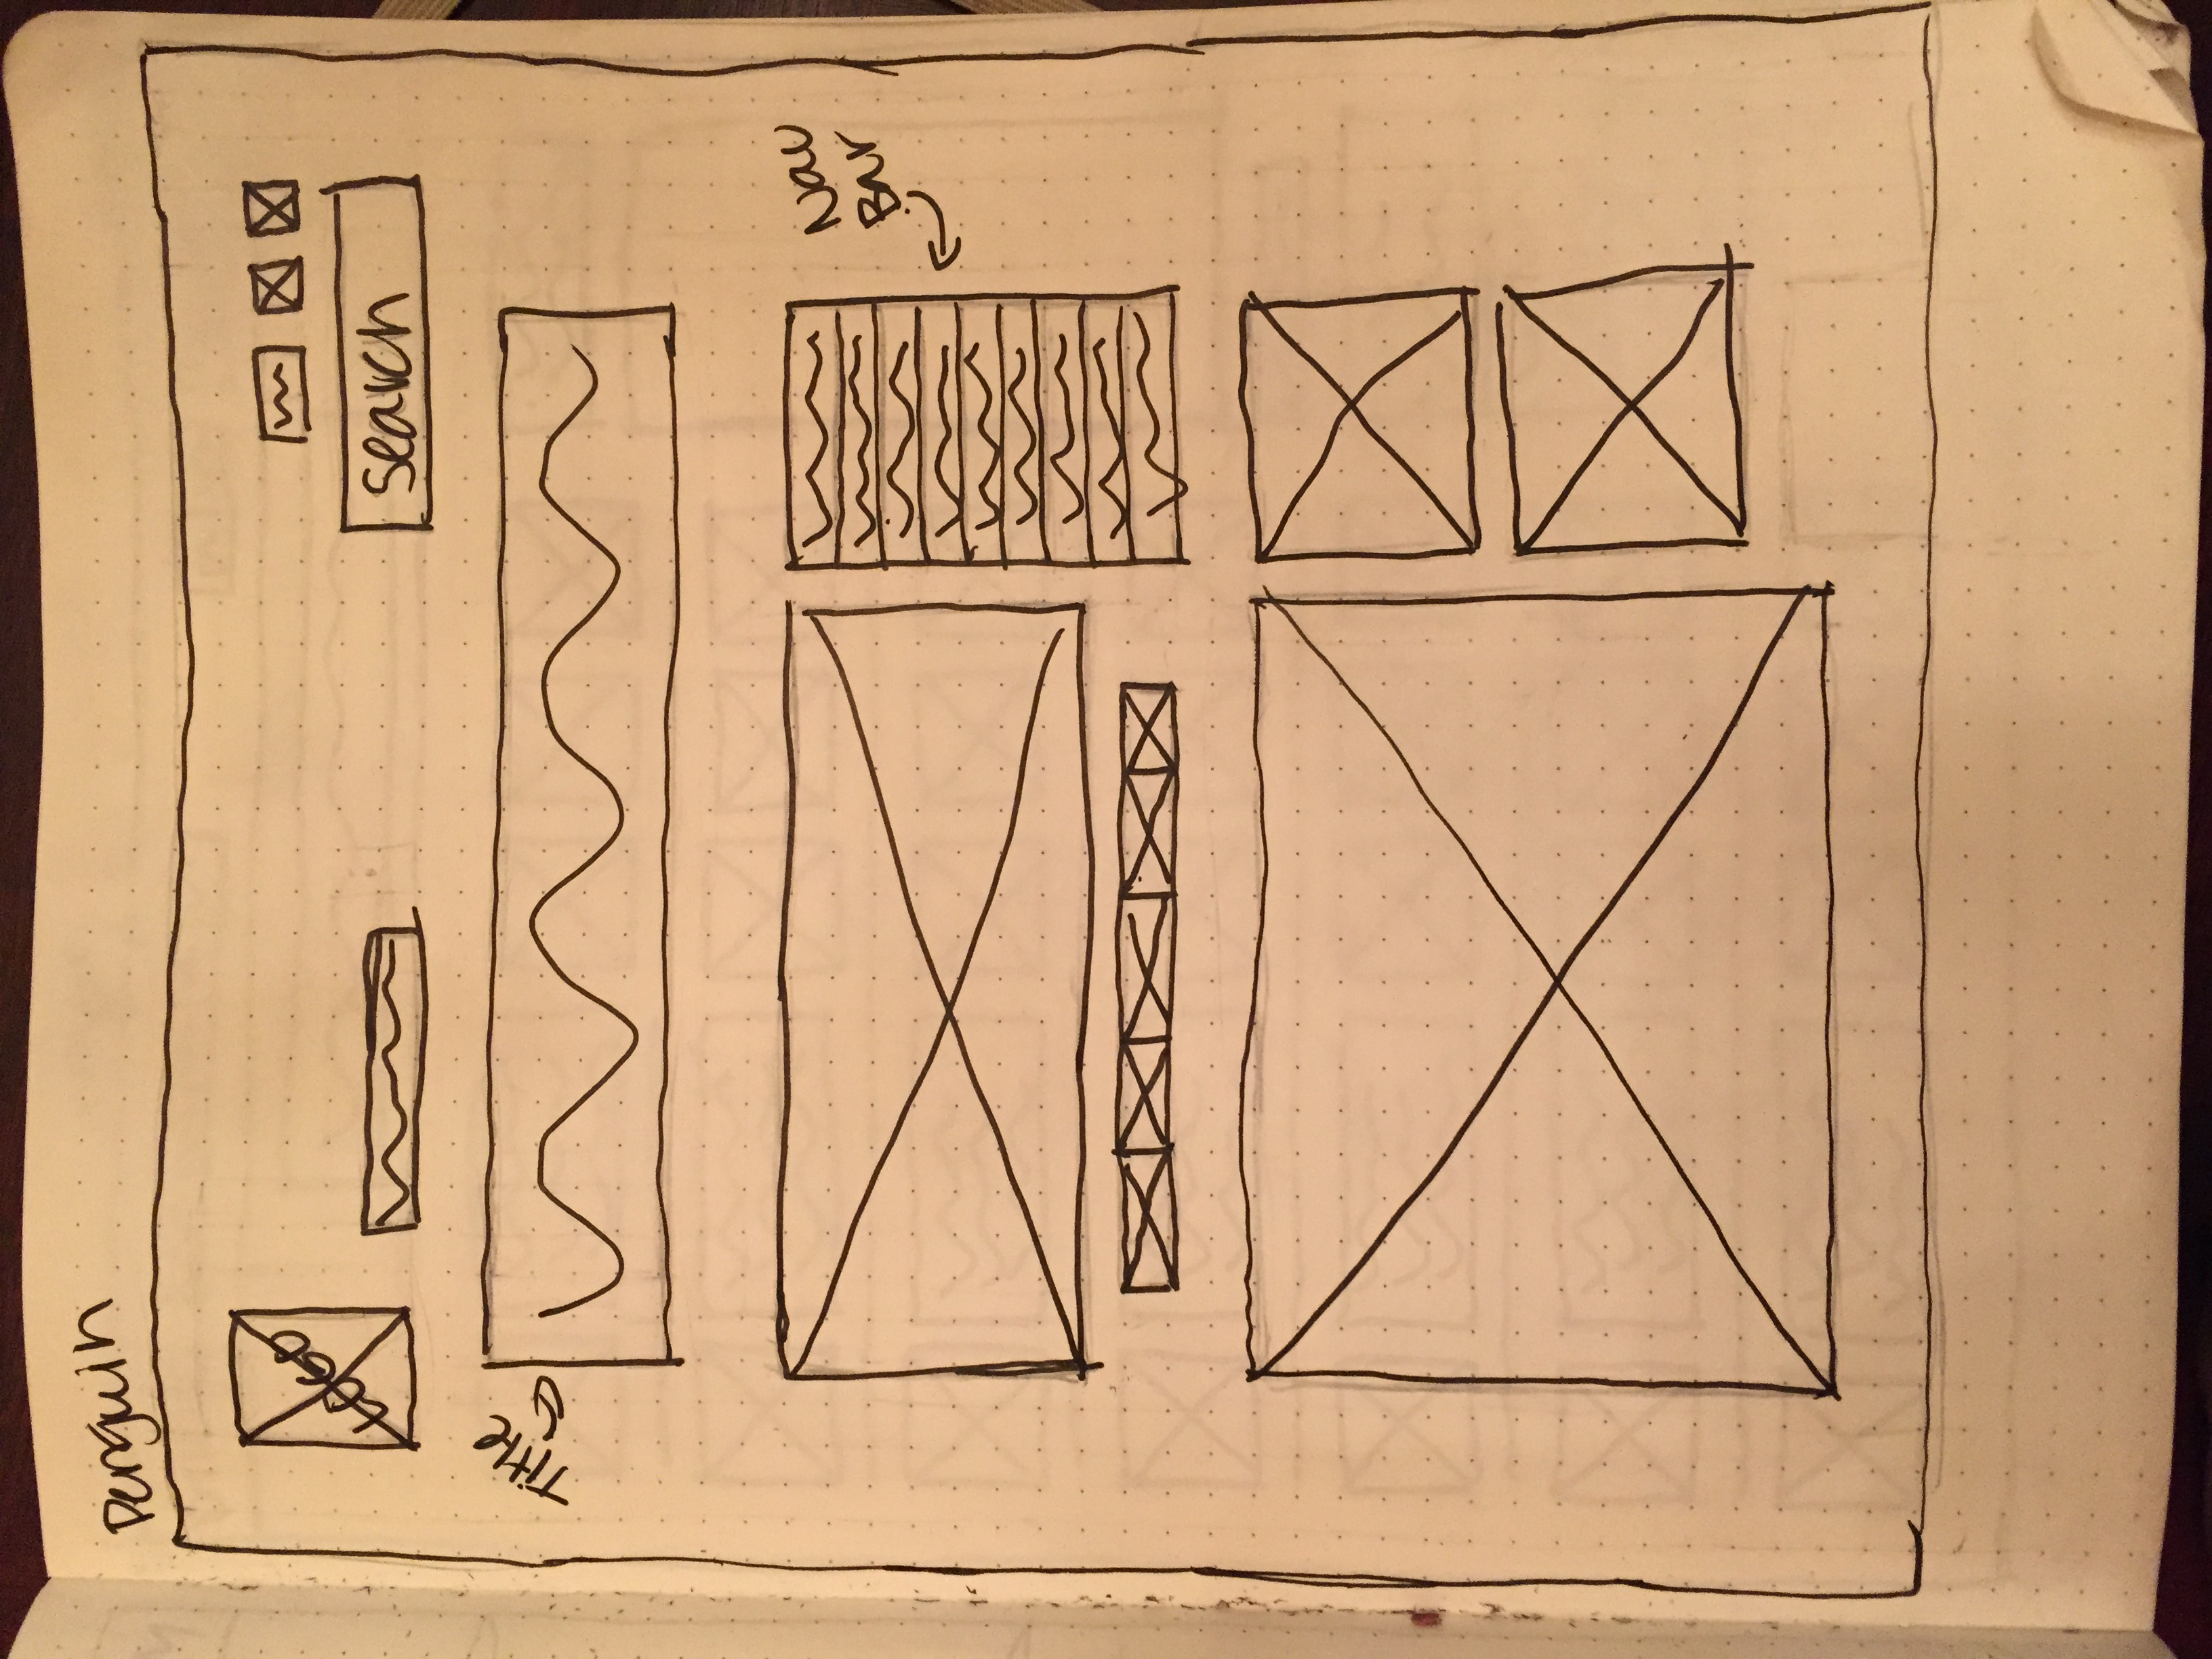 Penguin
LOGO
search
Title
Nav
Bar